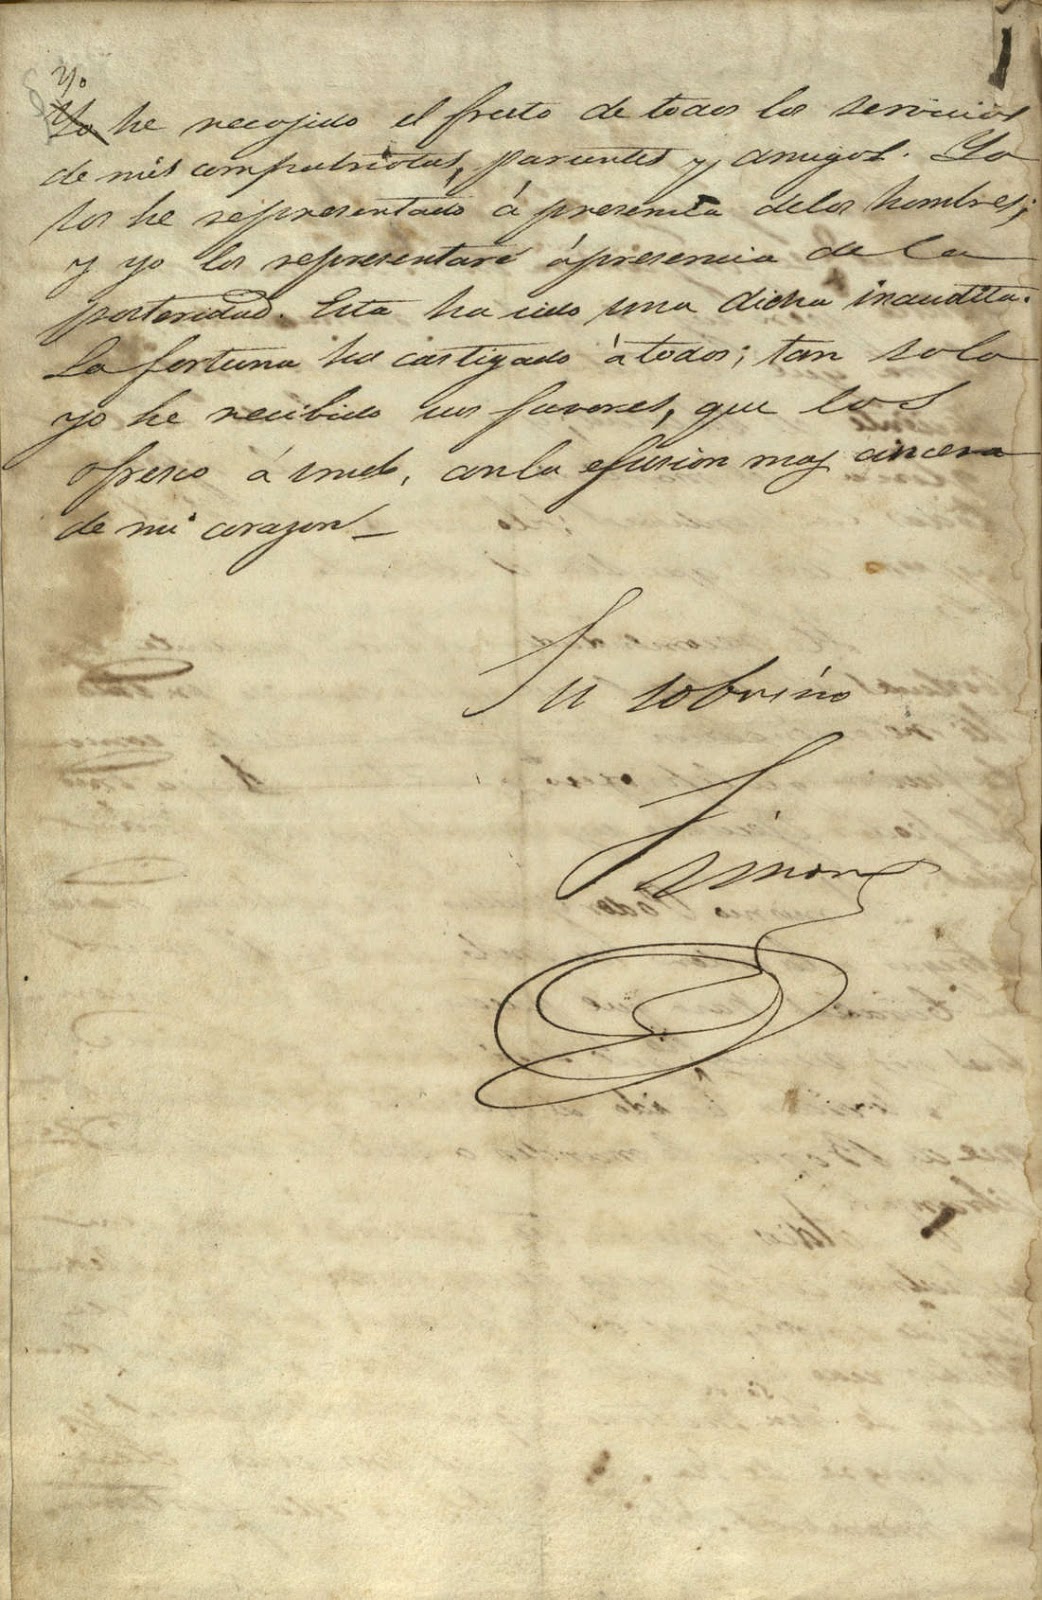 Yo
Yo he recojido el fruto de todos los servicios
de mis compatriotas, parientes y amigos. Yo
los he representado á presencia delos hombres;
y yo los representaré ápresencia de la
posteridad. Esta ha sido una dicha inaudita.
La fortuna ha castigado á todos; tan solo
yo he recibido sus favores, que los
ofresco á vmd, con la efusion mas cincera
de mi corazon_
Su sobrino
Simon